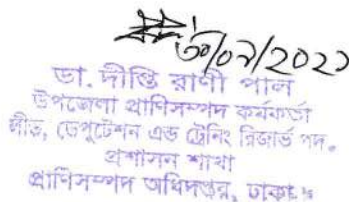 ৩০/০৯/২০২১
ডা. দীপ্তি রাণী পাল
উপজেলা প্রাণিসম্পদ কর্মকর্তা
লীভ, ডেপুটেশন এন্ড ট্রেনিং রিজার্ভ পদ।
প্রশাসন শাখা
প্রাণিসম্পদ অধিদপ্তর, ঢাকা।